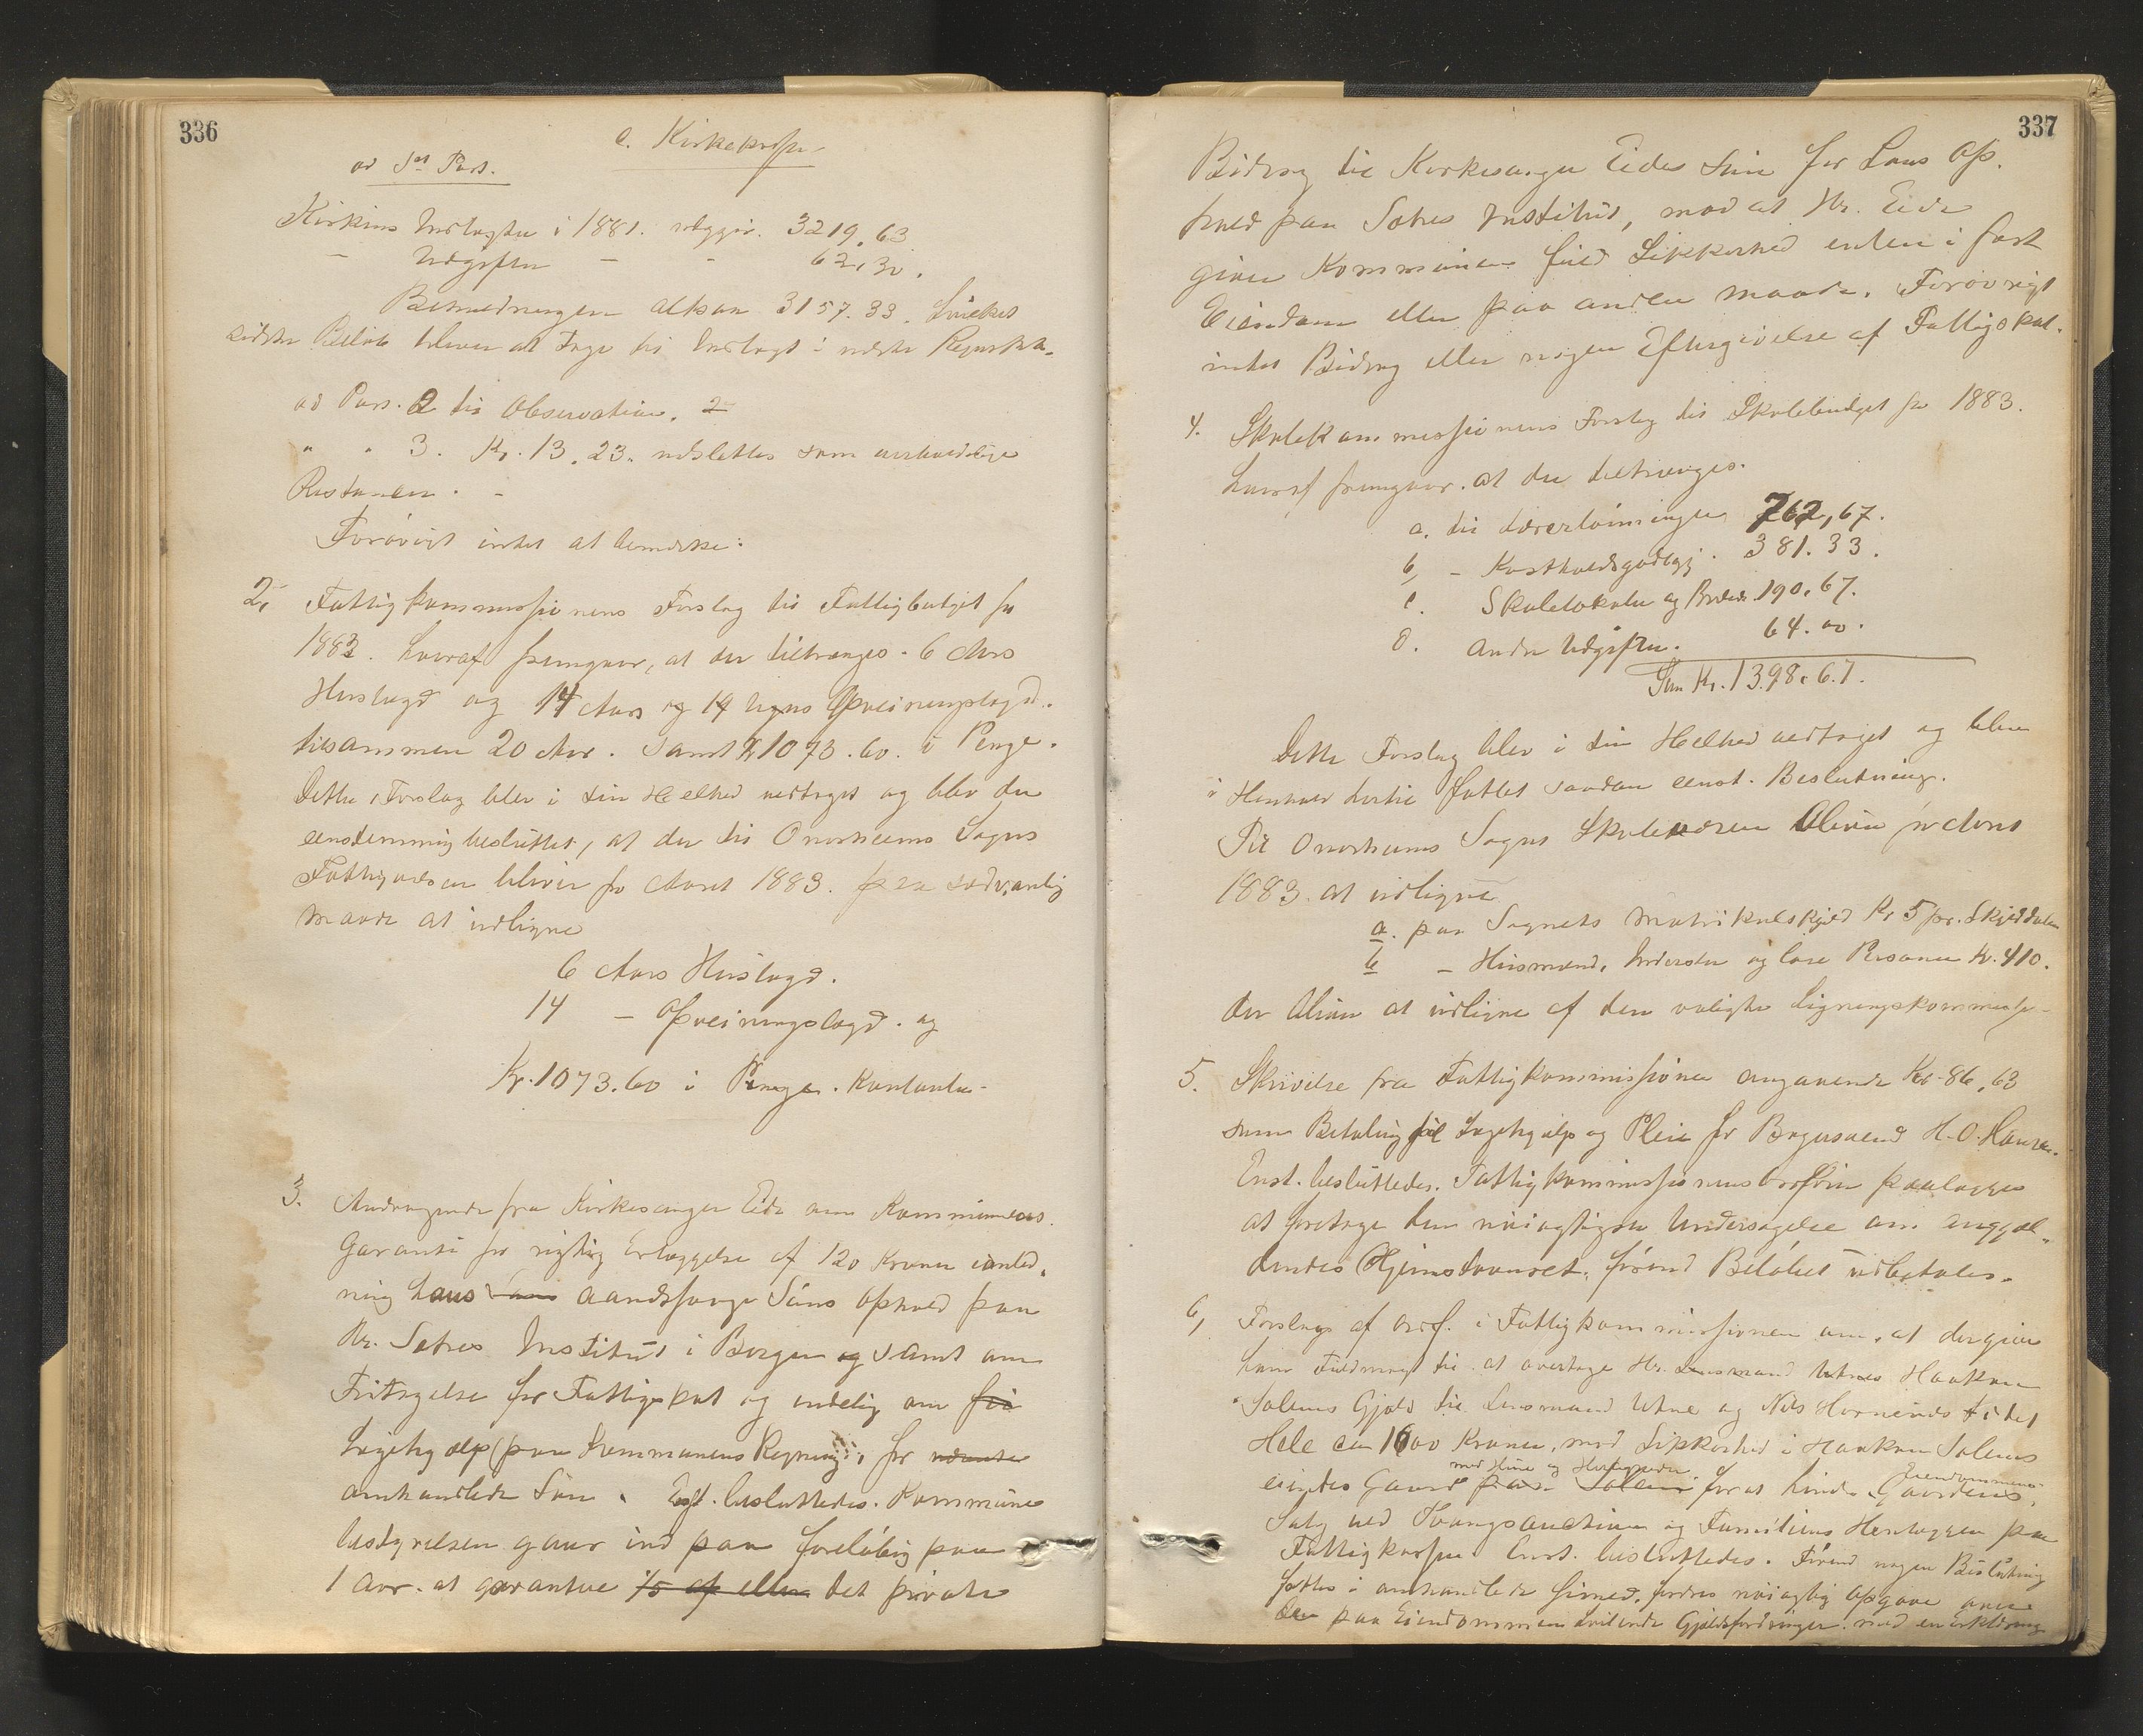 336
c. Kirkekassen
ad 1st Post.
Kirkens Indtægter i 1881. udgjør. 3219,63
— Udgifter — - 62,30.
Beholdningen altsaa 3157.33, hvilket
sidste Beløb bliver at tage til Indtægt i næste Regnskab.
ad Post. 2 til Observation. 2
" " 3. Kr. 13,23. udslettes som uerholdelige
Restancer. -
Forøvrigt intet at bemærke.
2, Fattigkommissionens Forslag til Fattigbudget for
1883. hvoraf fremgaar, at der tiltrænges. 6 Aars
Huslægd og 14 Aars og 14 Ugers Opfostringslægd.
tilsammen 20 Aar. samt Kr 1073.60. i Penge.
Dette Forslag blev i sin Helhed vedtaget og blev der
eenstemmig besluttet, at der til Onarheims Sogns
Fattigvæsen bliver for Aaret 1883. paa sædvanlig
Maade at udligne
6 Aars Huslægd.
14 — Opfostringslægd. og
Kr. 1073.60 i Penge. Kontanter-
3. Andragende fra Kirkesanger Eide om Kommunens
Garanti for rigtig Erlæggelse af 120 Kroner i anled,
ning hans aandssvage Søns Ophold paa
Hr. Sætres Institut i Bergen og samt om
Fritagelse for Fattigskat og endelig om fri
Lægehjælp (paa Kommunens Regning), for nævnte
omhandlede Søn. Enst. besluttedes. Kommune
bestyrelsen gaar ind paa foreløbig paa
1 Aar. at garantere 1/5 af eller det private
337
Bidrag til Kirkesanger Eides Søn for hans Op.
hold paa Sætres Institut, mod at Hr. Eide
giver Kommunen fuld Sikkerhed enten i fast
Eiendom eller paa anden Maade. Forøvrigt
intet Bidrag eller nogen Eftergivelse af Fattigskat.
4. Skolekommissionens Forslag til Skolebudget for 1883.
hvoraf fremgaar. at der tiltrænges.
a. til Lærerlønninger 762,67.
b, — Kostholdsgodtgj. 381.33.
c. Skolelokaler og Brænde. 190.67.
d. andre Udgifter. 64.00.
Sum Kr. 1398.67.
Dette Forslag blev i sin Helhed vedtaget og blev
i Henhold hertil fattet saadan eenst. Beslutning.
Til Onarheims Sogns Skolevæsen bliver for Aaret
1883. at udligne
a. paa Sognets Matrikulskyld Kr 5 pr. Skylddaler
b — Husmænd, Inderster og løse Personer Kr. 410.
der bliver at udligne af den valgte Ligningskommission
5. Skrivelse fra Fattigkommissionen angaaende Kr. 86,63
som Betaling for Lægehjælp og Pleie for Bagersvend H. O. Hansen.
Enst. besluttedes. Fattigkommissionens Ordfører paalægges
at foretage den nøiagtigste Undersøgelse om angjæl-
dendes Hjemstavnsret, førend Beløbet udbetales.
6, Forslag af Ordf. i Fattigkommissionen om, at der gives
ham Fuldmagt til at overtage Hr. Lensmand Haakon
Solems Gjæld til Lensmand Utne og Nils i det
Hele ca 1600 Kroner, mod Sikkerhed i Haakon Solems
med Huse og
eiendes Gaard paa Solem for at hindre Gaardens
Eiendommens
Salg ved Tvangsauction og Familiens Henlæggen paa
Fattigkassen. Enst. besluttedes. Førend nogen Beslutning
fattes i omhandlede Hensed, fordres nøiagtig Opgave over
de paa Eiendommen hvilende Gjældsfordringer. med en Erklæring